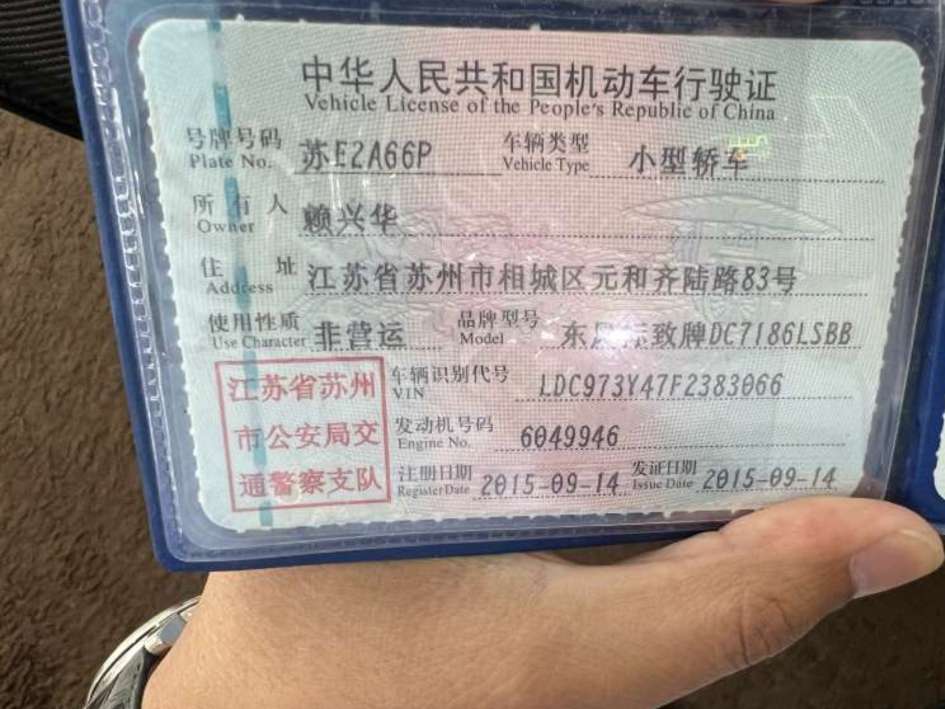 中华人民共和国机动车行驶证
Vehicle License of the People's Republic of China
号牌号码 苏E2A66P 车辆类型 小型轿车
Plate No. Vehicle Type
所有人 赖兴华
Owner
住址 江苏省苏州市相城区元和齐陆路83号
Address
使用性质 非营运 品牌型号 东风标致牌DC7186LSBB
Use Character Model
江苏省苏州
市公安局交
通警察支队
车辆识别代号 LDC973Y47F2383066
VIN
发动机号码 6049946
Engine No.
注册日期 2015-09-14 发证日期 2015-09-14
Register Date Issue Date